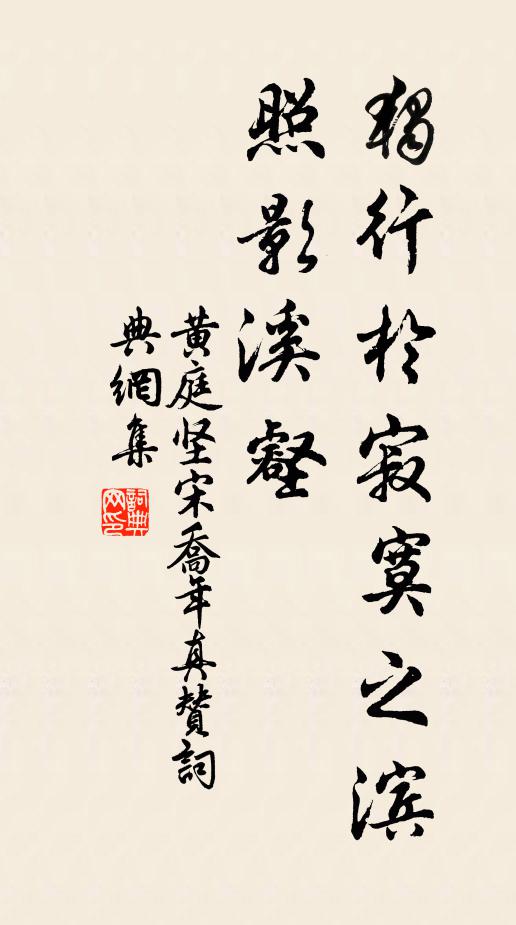 獨行於寂寞之滨
照影溪壑
黄庭坚宋喬年真贊詞
典網集
詞典网印